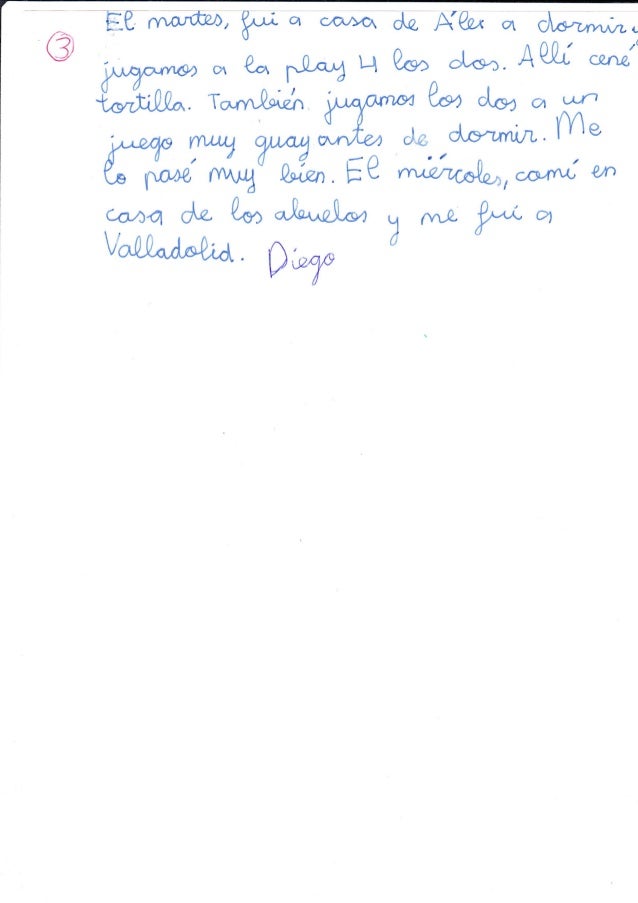 El martes, fui a casa de Álex a dormir.
③
jugamos a la play 4 los dos. Allí cené
tortilla. También jugamos los dos a un
juego muy guay antes de dormir. Me
lo pasé muy bien. El miércoles, comí en
casa de los abuelos y me fui a
Valladolid. Diego